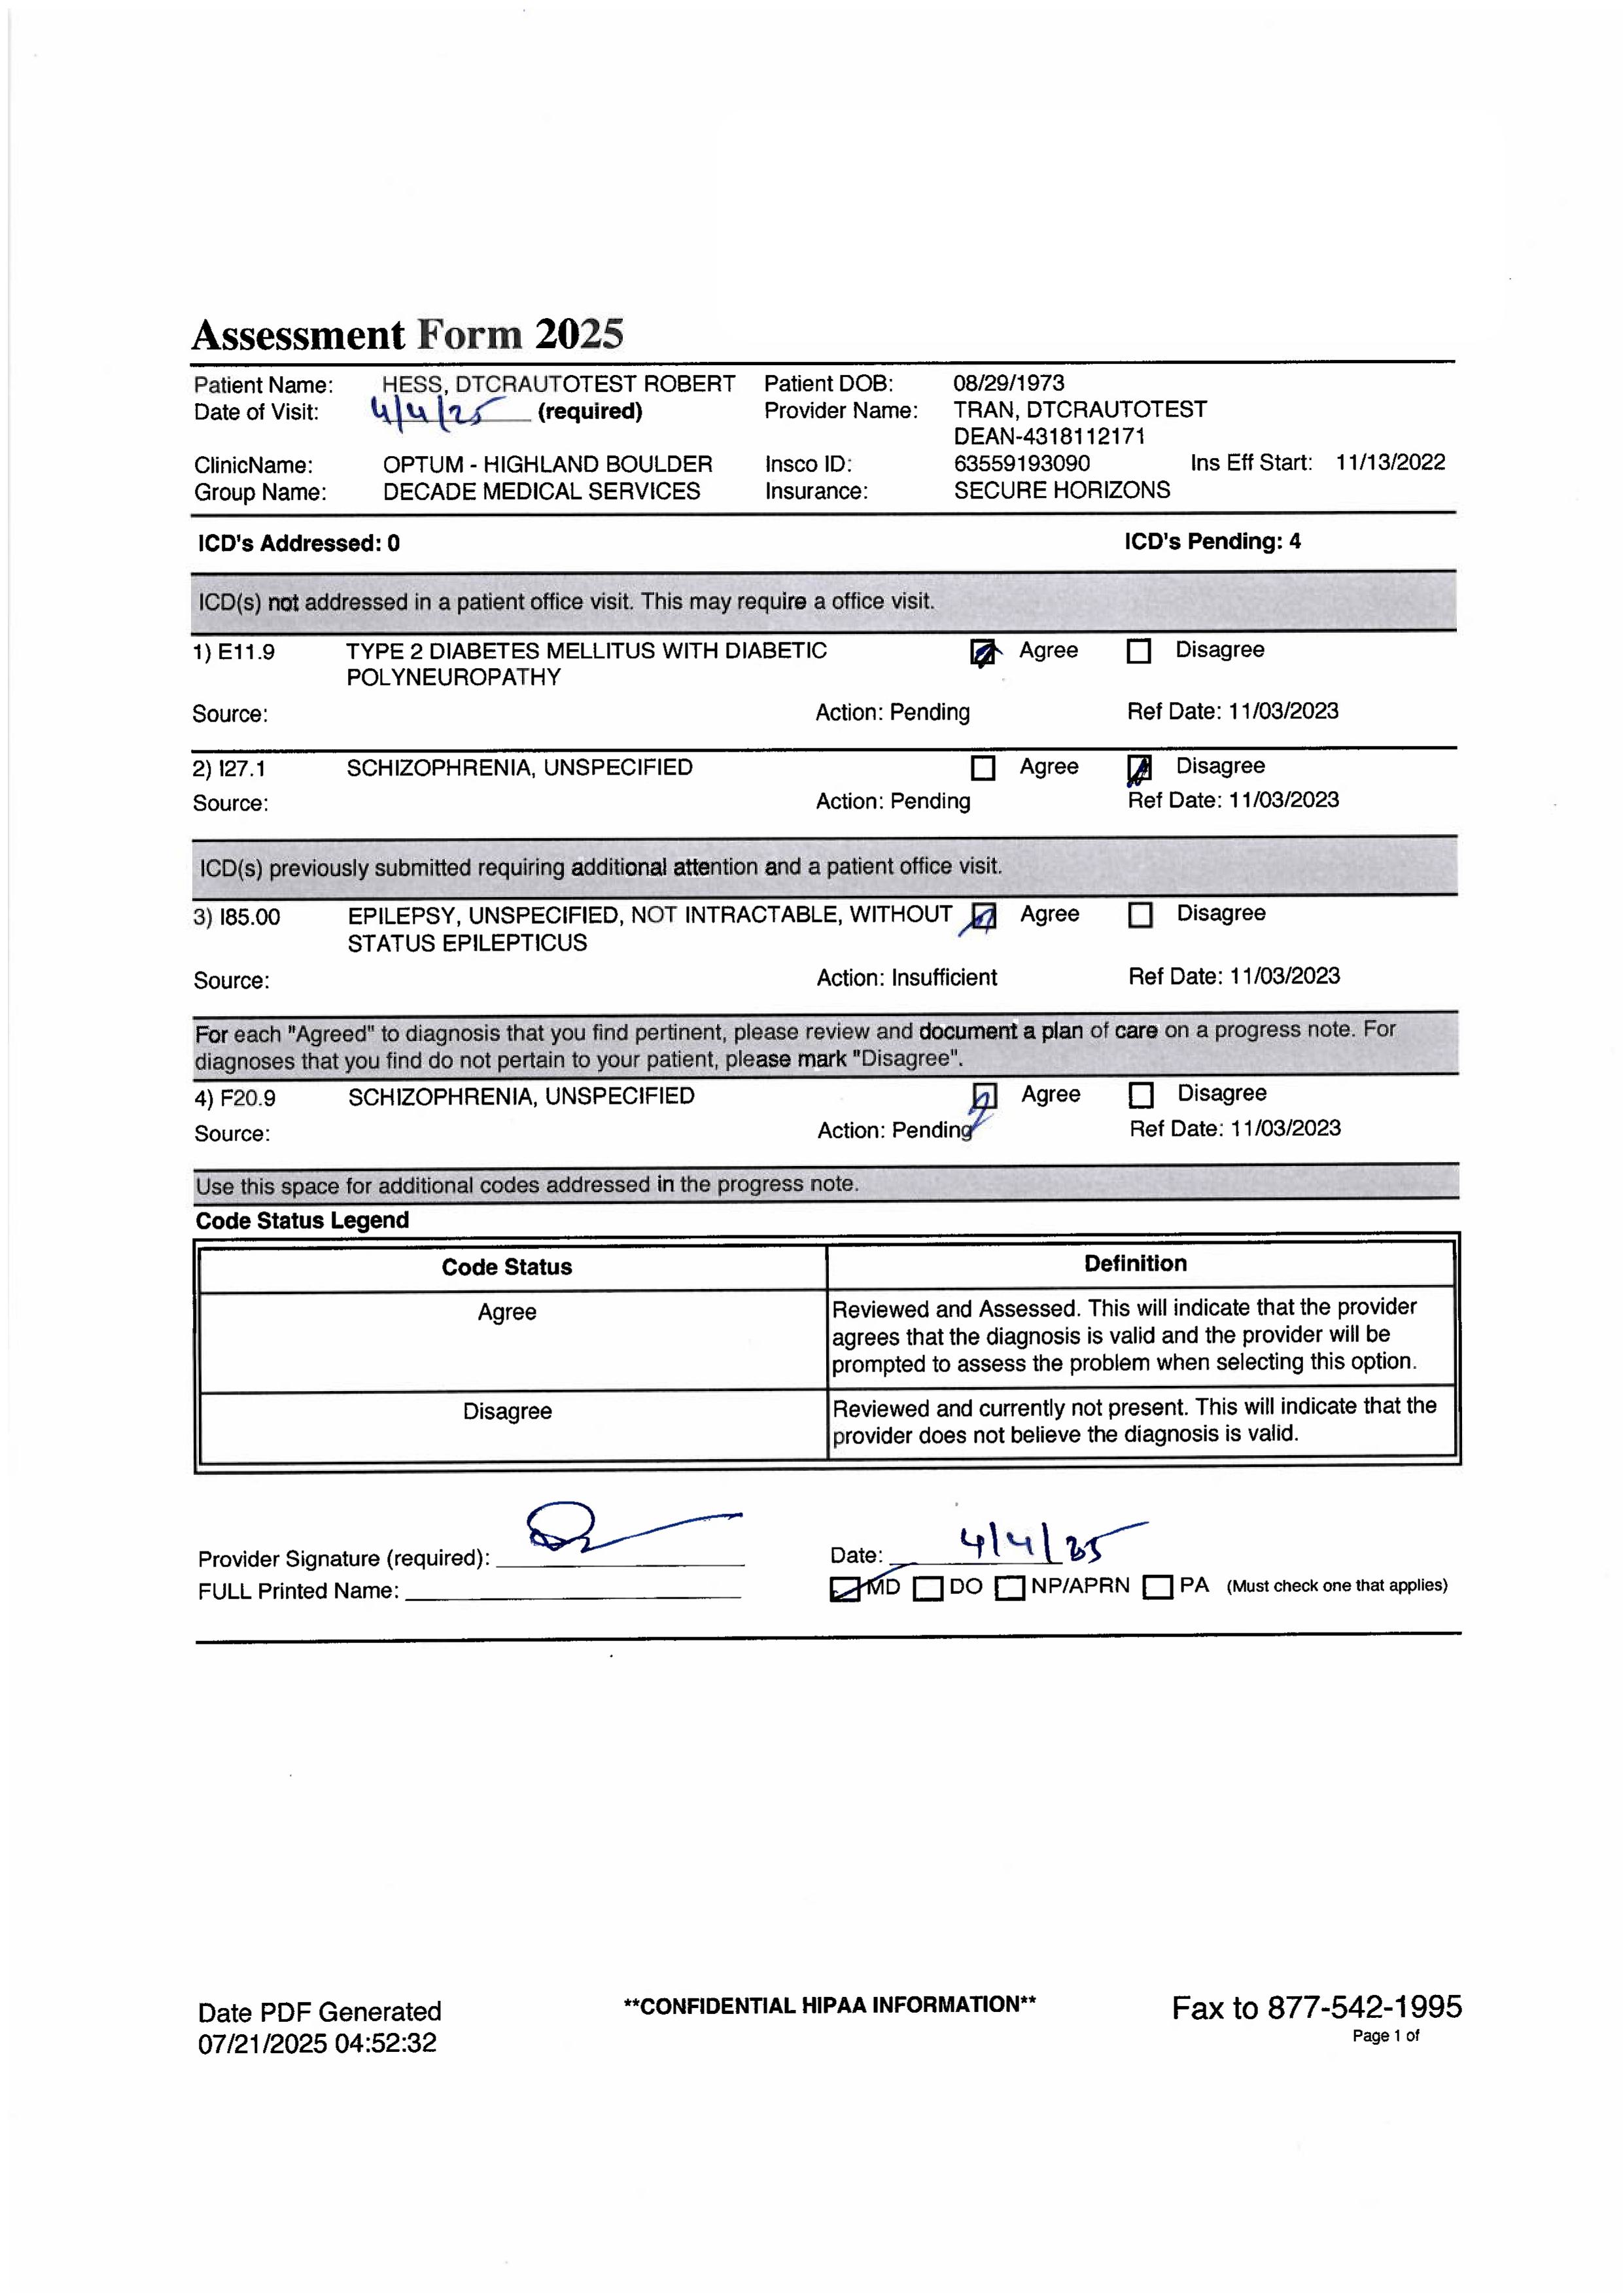 Assessment Form 2025
Patient Name: HESS, DTCRAUTOTEST ROBERT Patient DOB: 08/29/1973
Date of Visit: 4/4/25 (required) Provider Name: TRAN, DTCRAUTOTEST
DEAN-4318112171
ClinicName: OPTUM - HIGHLAND BOULDER Insco ID: 63559193090 Ins Eff Start: 11/13/2022
Group Name: DECADE MEDICAL SERVICES Insurance: SECURE HORIZONS
ICD's Addressed: 0 ICD's Pending: 4
ICD(s) not addressed in a patient office visit. This may require a office visit.
1) E11.9 TYPE 2 DIABETES MELLITUS WITH DIABETIC Agree Disagree
POLYNEUROPATHY
Source: Action: Pending Ref Date: 11/03/2023
2) I27.1 SCHIZOPHRENIA, UNSPECIFIED Agree Disagree
Source: Action: Pending Ref Date: 11/03/2023
ICD(s) previously submitted requiring additional attention and a patient office visit.
3) I85.00 EPILEPSY, UNSPECIFIED, NOT INTRACTABLE, WITHOUT Agree Disagree
STATUS EPILEPTICUS
Source: Action: Insufficient Ref Date: 11/03/2023
For each "Agreed" to diagnosis that you find pertinent, please review and document a plan of care on a progress note. For
diagnoses that you find do not pertain to your patient, please mark "Disagree".
4) F20.9 SCHIZOPHRENIA, UNSPECIFIED Agree Disagree
Source: Action: Pending Ref Date: 11/03/2023
Use this space for additional codes addressed in the progress note.
Code Status Legend
Code Status Definition
Agree Reviewed and Assessed. This will indicate that the provider
agrees that the diagnosis is valid and the provider will be
prompted to assess the problem when selecting this option.
Disagree Reviewed and currently not present. This will indicate that the
provider does not believe the diagnosis is valid.
Provider Signature (required): Date: 4/4/25
FULL Printed Name: MD DO NP/APRN PA (Must check one that applies)
Date PDF Generated **CONFIDENTIAL HIPAA INFORMATION** Fax to 877-542-1995
07/21/2025 04:52:32 Page 1 of